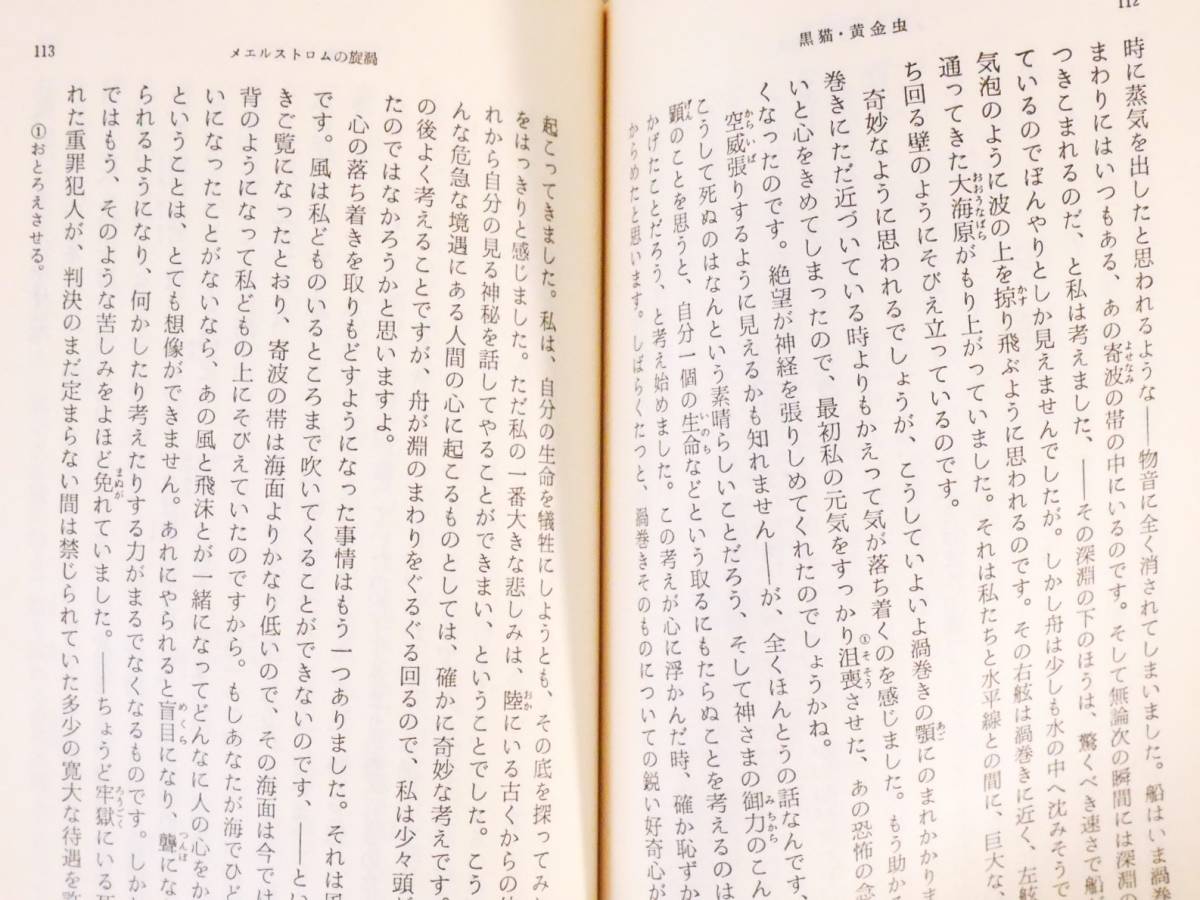 112
黒猫・黄金虫
時に蒸気を出したと思われるような――物音に全く消されてしまいました。船はいま渦巻
まわりにはいつもある、あの寄波の帯の中にいるのです。そして無論次の瞬間には深淵の
つきこまれるのだ、と私は考えました、――その深淵の下のほうは、驚くべき速さで船が
ているのでぼんやりとしか見えませんでしたが。しかし舟は少しも水の中へ沈みそうで
気泡のように波の上を掠り飛ぶように思われるのです。その右舷は渦巻きに近く、左舷
通ってきた大海原がもり上がっていました。それは私たちと水平線との間に、巨大な、
ち回る壁のようにそびえ立っているのです。
奇妙なように思われるでしょうが、こうしていよいよ渦巻きの顎にのまれかかりま
巻きにただ近づいている時よりもかえって気が落ち着くのを感じました。もう助か
いと心をきめてしまったので、最初私の元気をすっかり①沮喪させた、あの恐怖の念
くなったのです。絶望が神経を張りしめてくれたのでしょうかね。
空威張りするように見えるかも知れません――が、全くほんとうの話なんです、
こうして死ぬのはなんという素晴らしいことだろう、そして神さまの御力のこん
顕のことを思うと、自分一個の生命などという取るにもたらぬことを考えるのは
かげたことだろう、と考え始めました。この考えが心に浮かんだ時、確か恥ずか
からめたと思います。しばらくたつと、渦巻きそのものについての鋭い好奇心が
メエルストロムの旋渦
113
起こってきました。私は、自分の生命を犠牲にしようとも、その底を探ってみ
をはっきりと感じました。ただ私の一番大きな悲しみは、陸にいる古くからの
れから自分の見る神秘を話してやることができまい、ということでした。こう
んな危急な境遇にある人間の心に起こるものとしては、確かに奇妙な考えです。
の後よく考えることですが、舟が淵のまわりをぐるぐる回るので、私は少々頭
たのではなかろうかと思いますよ。
心の落ち着きを取りもどすようになった事情はもう一つありました。それは
です。風は私どものいるところまで吹いてくることができないのです、――と
きご覧になったとおり、寄波の帯は海面よりかなり低いので、その海面は今では
背のようになって私どもの上にそびえていたのですから。もしあなたが海でひど
いになったことがないなら、あの風と飛沫とが一緒になってどんなに人の心をか
ということは、とても想像ができません。あれにやられると盲目になり、聾にな
られるようになり、何かしたり考えたりする力がまるでなくなるものです。しか
ではもう、そのような苦しみをよほど免れていました。――ちょうど牢獄にいる
れた重罪犯人が、判決のまだ定まらない間は禁じられていた多少の寛大な待遇を
①おとろえさせる。